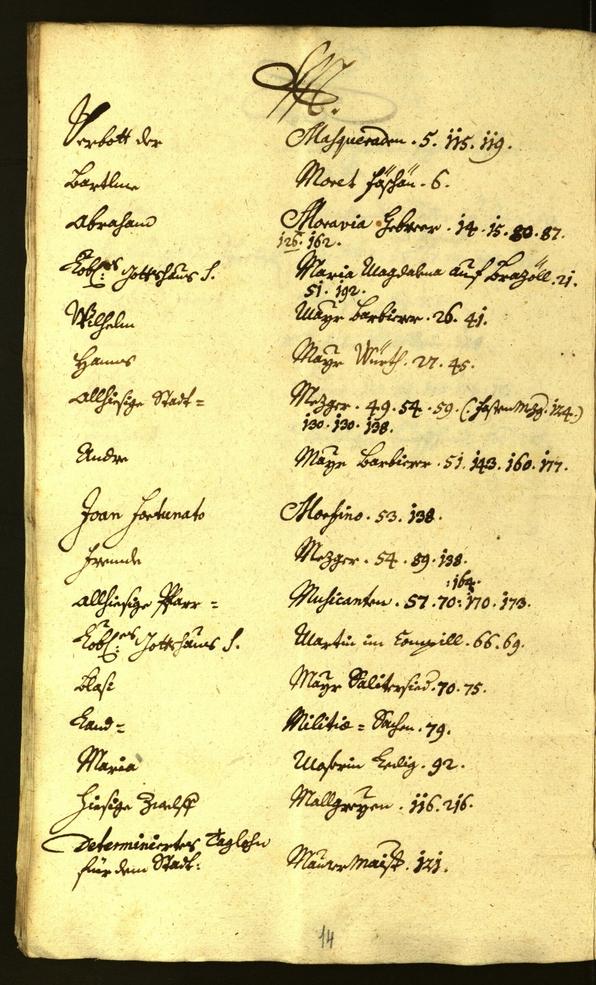 M.
Verbott der Masqueraden . 5. 115. 119.
Bartlme Moret 6.
Abraham Moravia Hebreer . 14. 15. 80. 87.
126. 162.
Löbl: Gottshaus S. Maria Magdalena auf 21.
51. 192.
Wilhelm Mayr Barbierer . 26. 41.
Hanns Mayr Würth . 27. 45.
Allhiesige Stadt= Mezger . 49. 54. 59. (: 124.)
130. 130. 138.
Andre Mayr Barbierer . 51. 143. 160. 177.
Joan Fortunato 53. 138.
Fremde Mezger . 54. 89. 138.
:164.
Allhiesige Pfarr= Musicanten . 57. 70: 170. 173.
Löbl: Gottshaus S. Martin im Compill . 66. 69.
Blasi Mayr Salitersied. 70. 75.
Land= Militiæ = Sachen . 79.
Maria Ledig . 92.
Hiesige Zwelff Mallgreyen . 116. 216.
Determiniertes Taglohn
für dem Stadt: Maurermaist. 121.
14